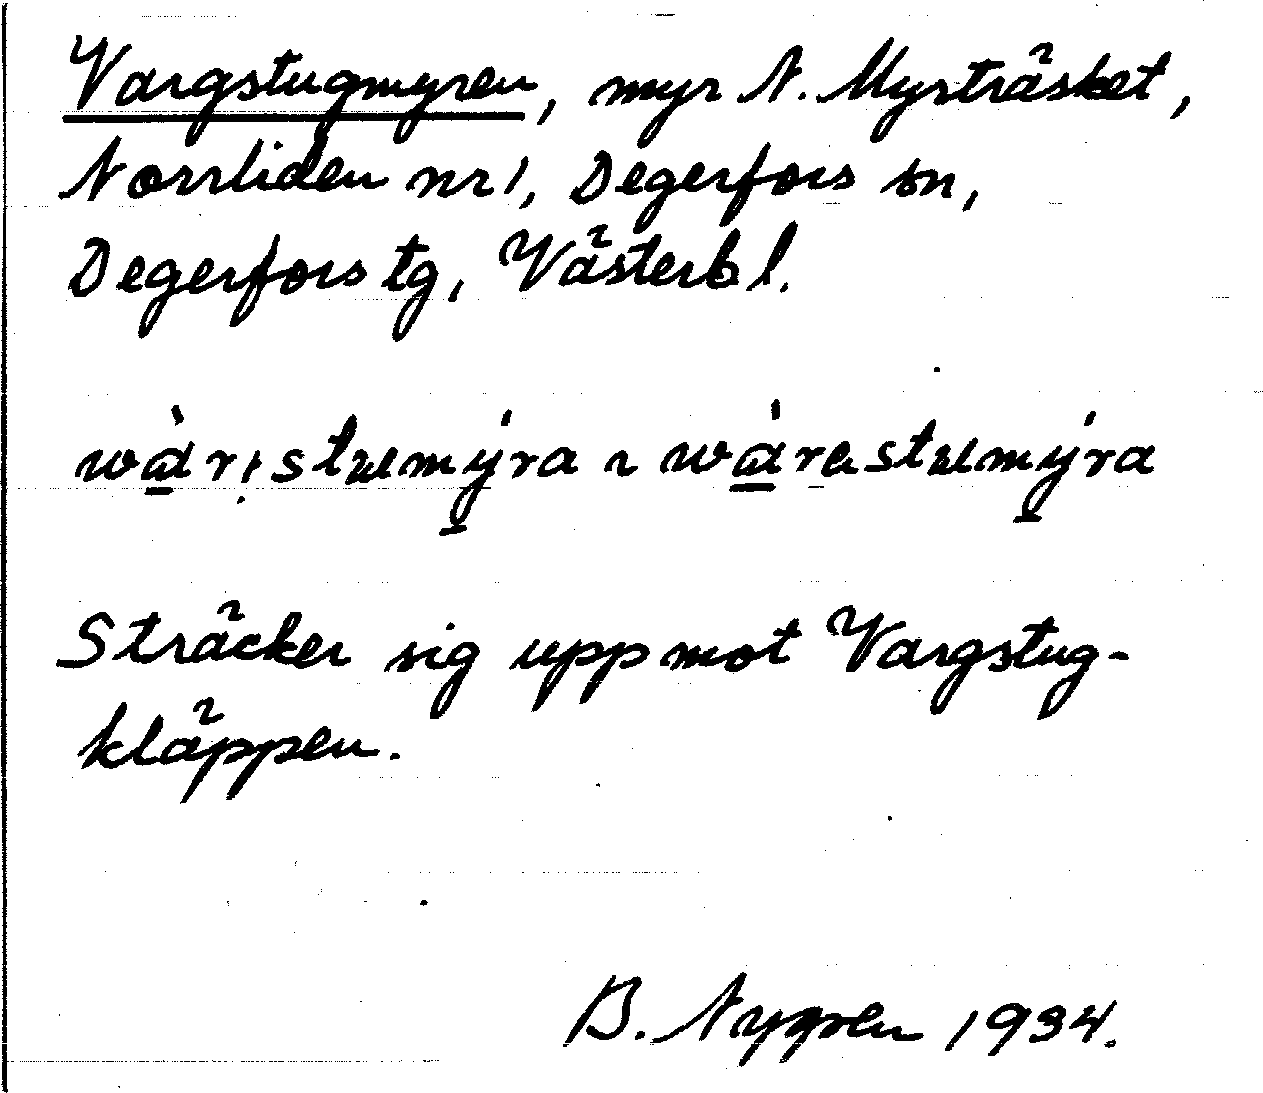 Vargstugmyren, myr N. Myrträsket,
Norrliden nr 1, Degerfors sn,
Degerfors tg, Västerb l.
Sträcker sig upp mot Vargstug-
kläppen.
B. Nygren 1934.